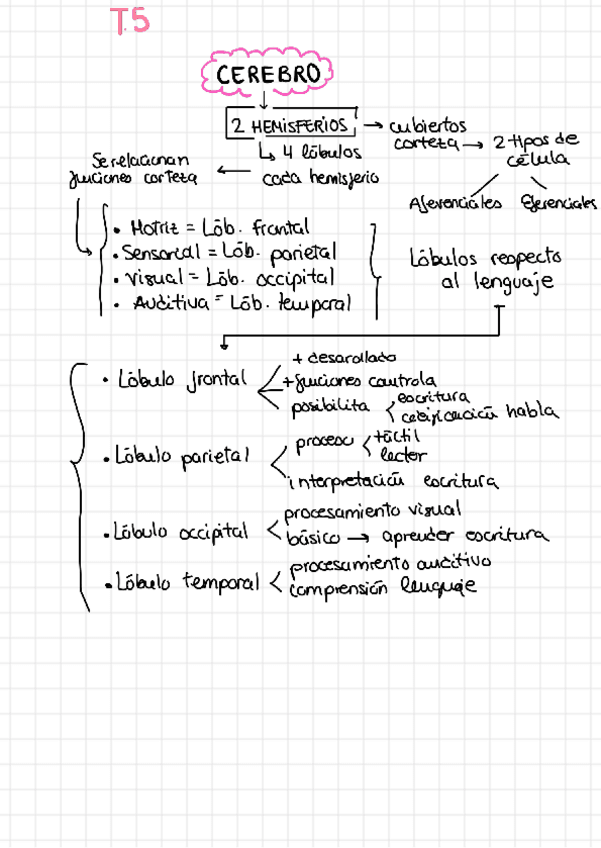 T.5
CEREBRO
2 HEMISFERIOS → cubiertos
corteza → 2 tipos de
célula
↳ 4 lóbulos
cada hemisferio
Se relacionan
funciones corteza
Aferenciales Eferenciales
• Motriz = Lób. frontal
• Sensorial = Lób. parietal
• Visual = Lób. occipital
• Auditiva = Lób. temporal
Lóbulos respecto
al lenguaje
• Lóbulo frontal
+ desarollado
+ funciones controla
posibilita
escritura
codificación habla
• Lóbulo parietal
proceso
táctil
lector
interpretación escritura
• Lóbulo occipital
procesamiento visual
básico → aprender escritura
• Lóbulo temporal
procesamiento auditivo
comprensión lenguaje